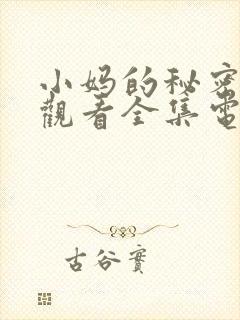 小妈的秘密
觀看全集電
古谷實